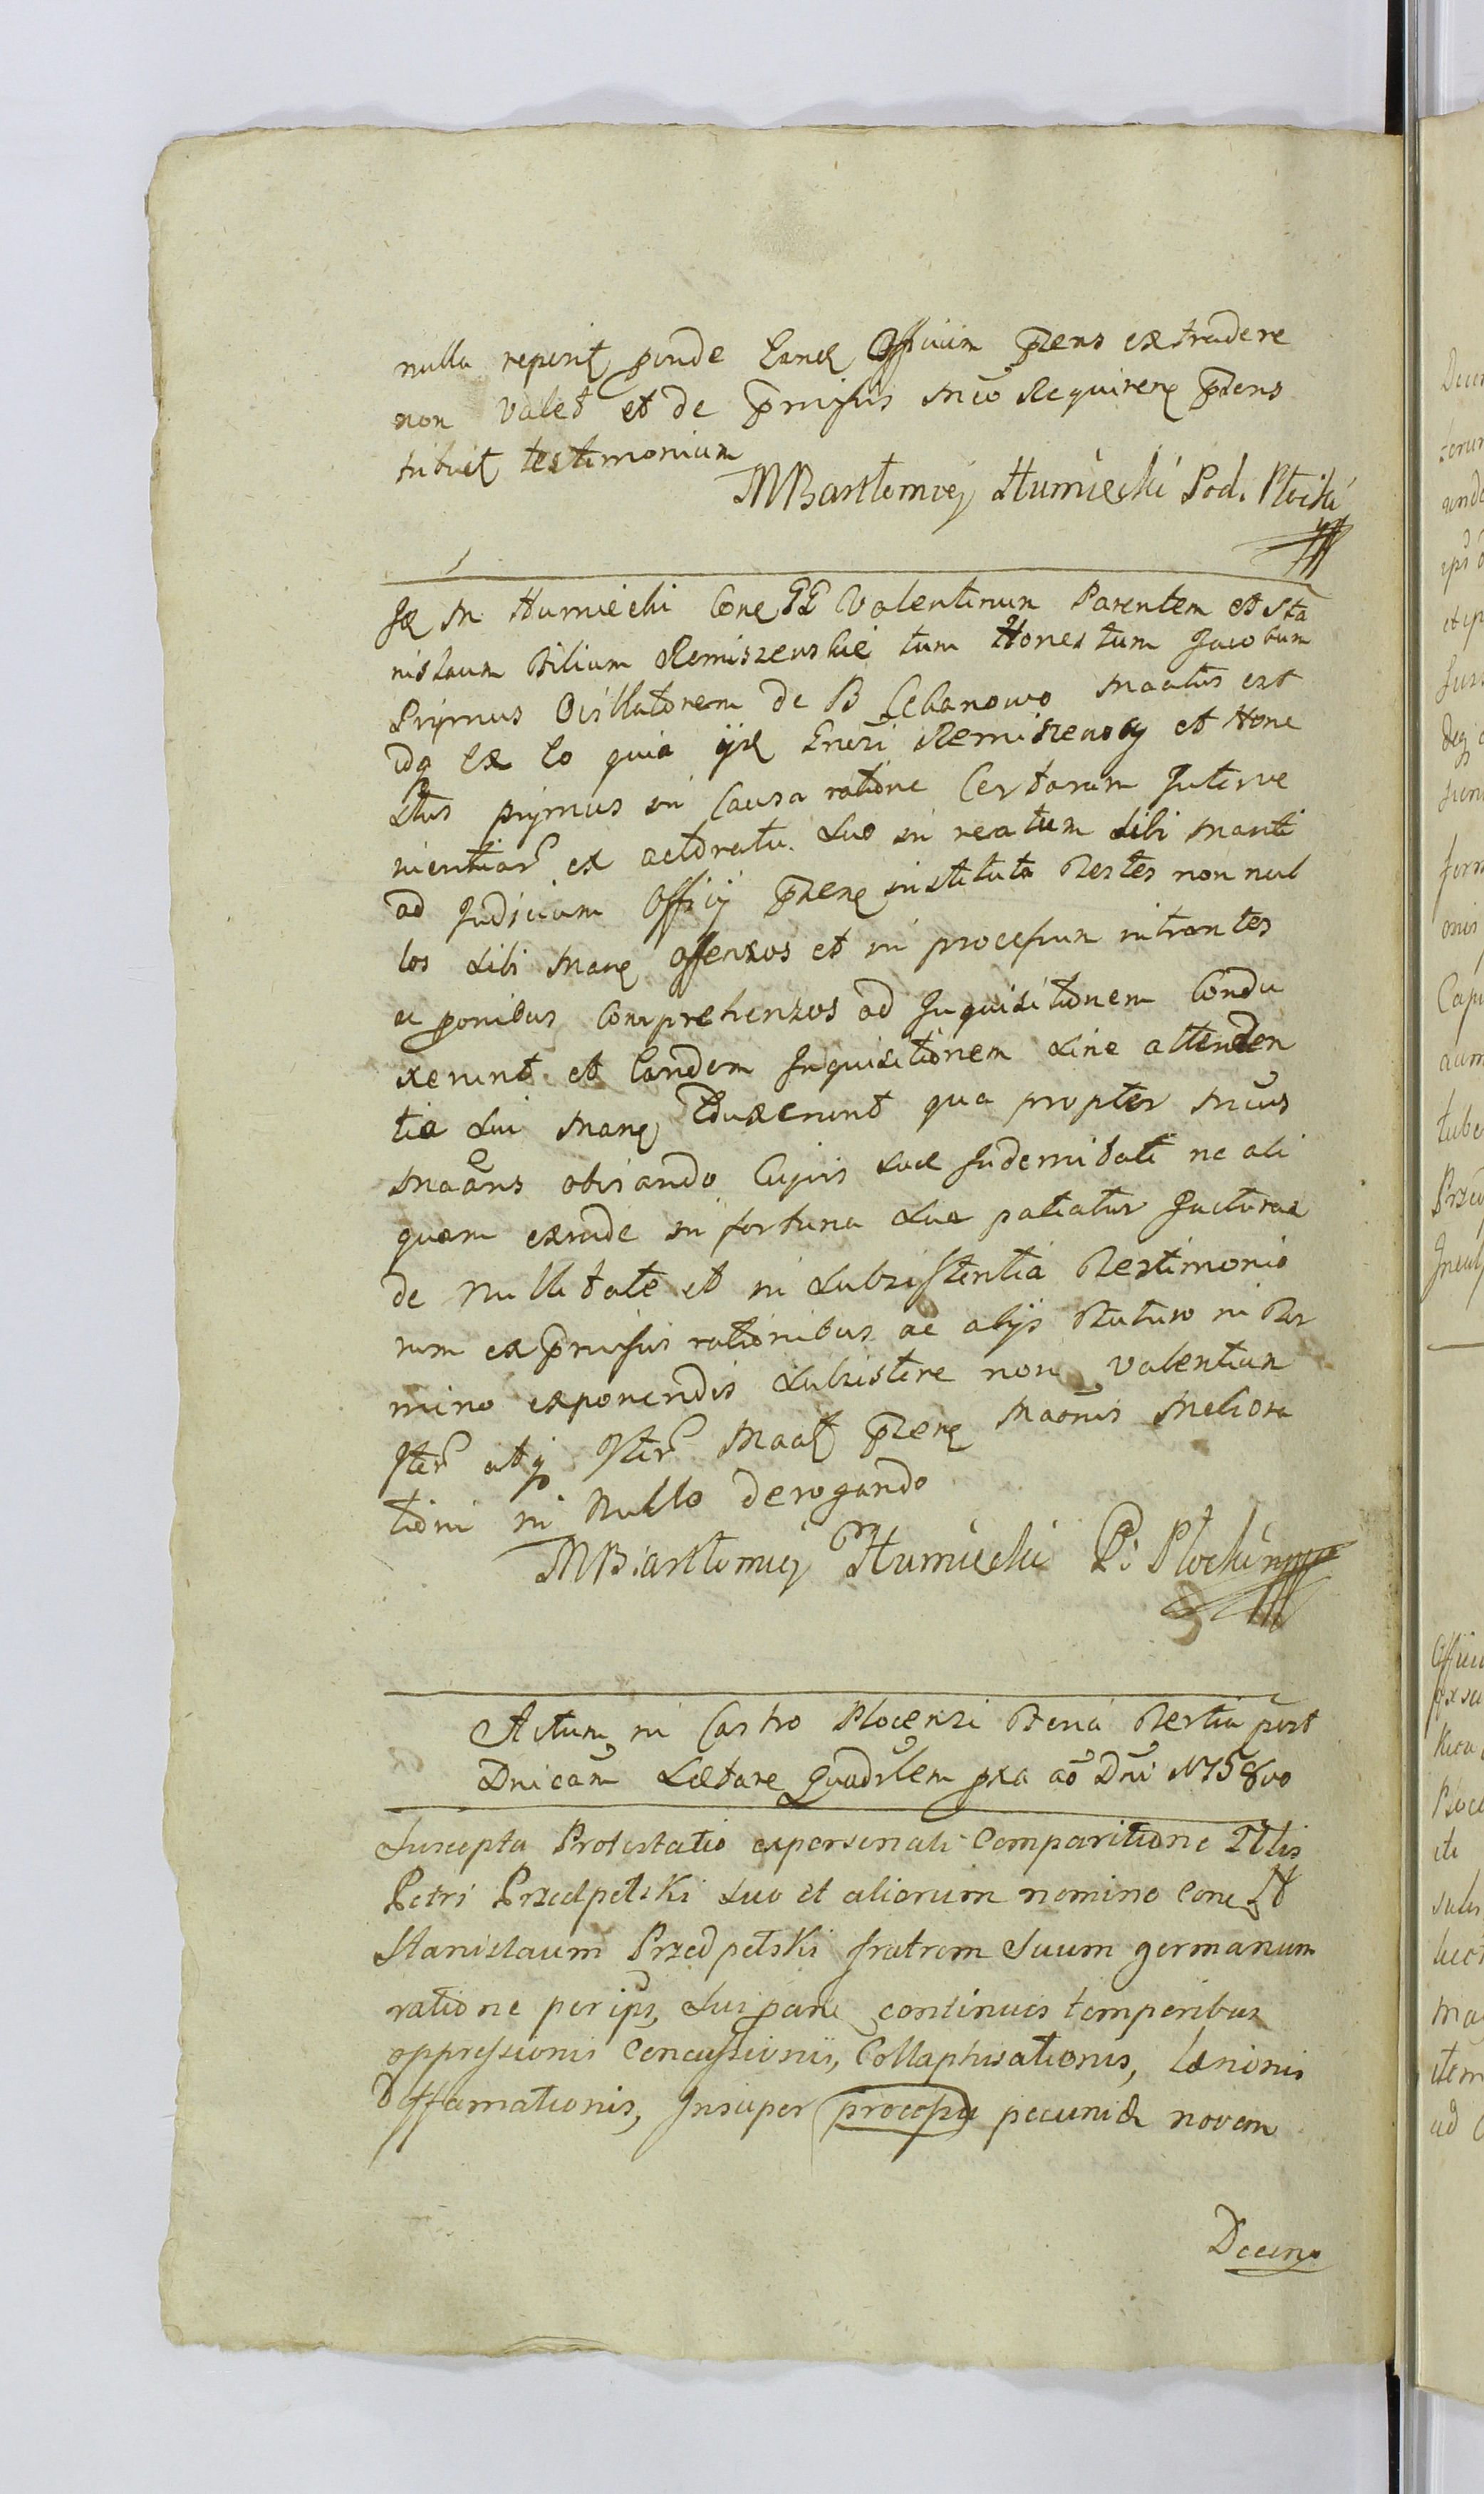 nulla reperit proinde Eand Officium praens extradere
non valet et de praemissis Mco Requirene praens
tribuit testimonium
MBartłomiej Humiecki Pod. Płocki
Idę M Humiecki Cone GG Valentinum Parentem et Sta
nislaum Filium Remiszewskie tum Honestum Jacobum
Prymus Ovillatorem de B Cekanowo Maatus est
idq Ex eo quia ijd Gnersi Remiszewscy et Hone
stus prymus in Causa ratione Certarum Interve
nientiar ex actoratu suo in reatum sibi Manti
ad Judicium Officij praens instituta Testes non nul
los sibi Mane offensos et in processum intrantes
ac ponibus Comprehensos ad Inquisitionem Condu
xerunt et Eandem Inquisitionem sine attenden
tia sui Mane Eduxerunt qua propter Mcus
Maans obviando Cujus suae Indemnitati ne ali
quam exinde in fortuna sua patiatur Jacturae
de Nullitate et in subsistentia Testimonio
rum ex praemissis rationibus ac alijs Futuro in Ter
mino exponendis subsistere non valentium
Iter atq Iter Maat praens Maonis Meliora
tioni in Nullo derogando
MBartłomiej Humiecki P: Płocki mp
Actum in Castro Plocensi Feria Tertia post
Dnicam Laetare Quadrlem pxa ao Dni 1758vo
Suscepta Protestatio expersonali Comparitione Gtlis
Petri Przedpełski suo et aliorum nomine Cone Gt
Stanislaum Przedpełski fratrem Suum germanum
ratione per ips, suis pane continuis temporibus
oppressionis Concussionis, Collaphisationis, Laesionis
Diffamationis, Insuper processu pecuniae novem
Decem